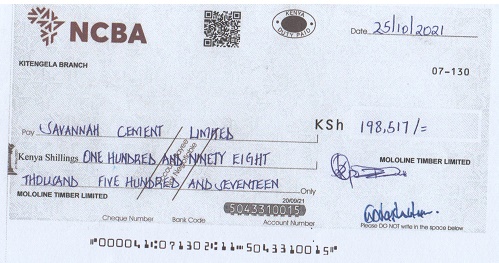 NCBA
KENYA
DUTY PAID
Date 25/10/2021
KITENGELA BRANCH
07-130
Pay SAVANNAH CEMENT LIMITED
KSh 198,517/=
Kenya Shillings ONE HUNDRED AND NINETY EIGHT
THOUSAND FIVE HUNDRED AND SEVENTEEN Only
MOLOLINE TIMBER LIMITED
MOLOLINE TIMBER LIMITED
20/09/21
5043310015
Cheque Number Bank Code Account Number
Please DO NOT write in the space below
"000041:07130 2:11 5043310015"